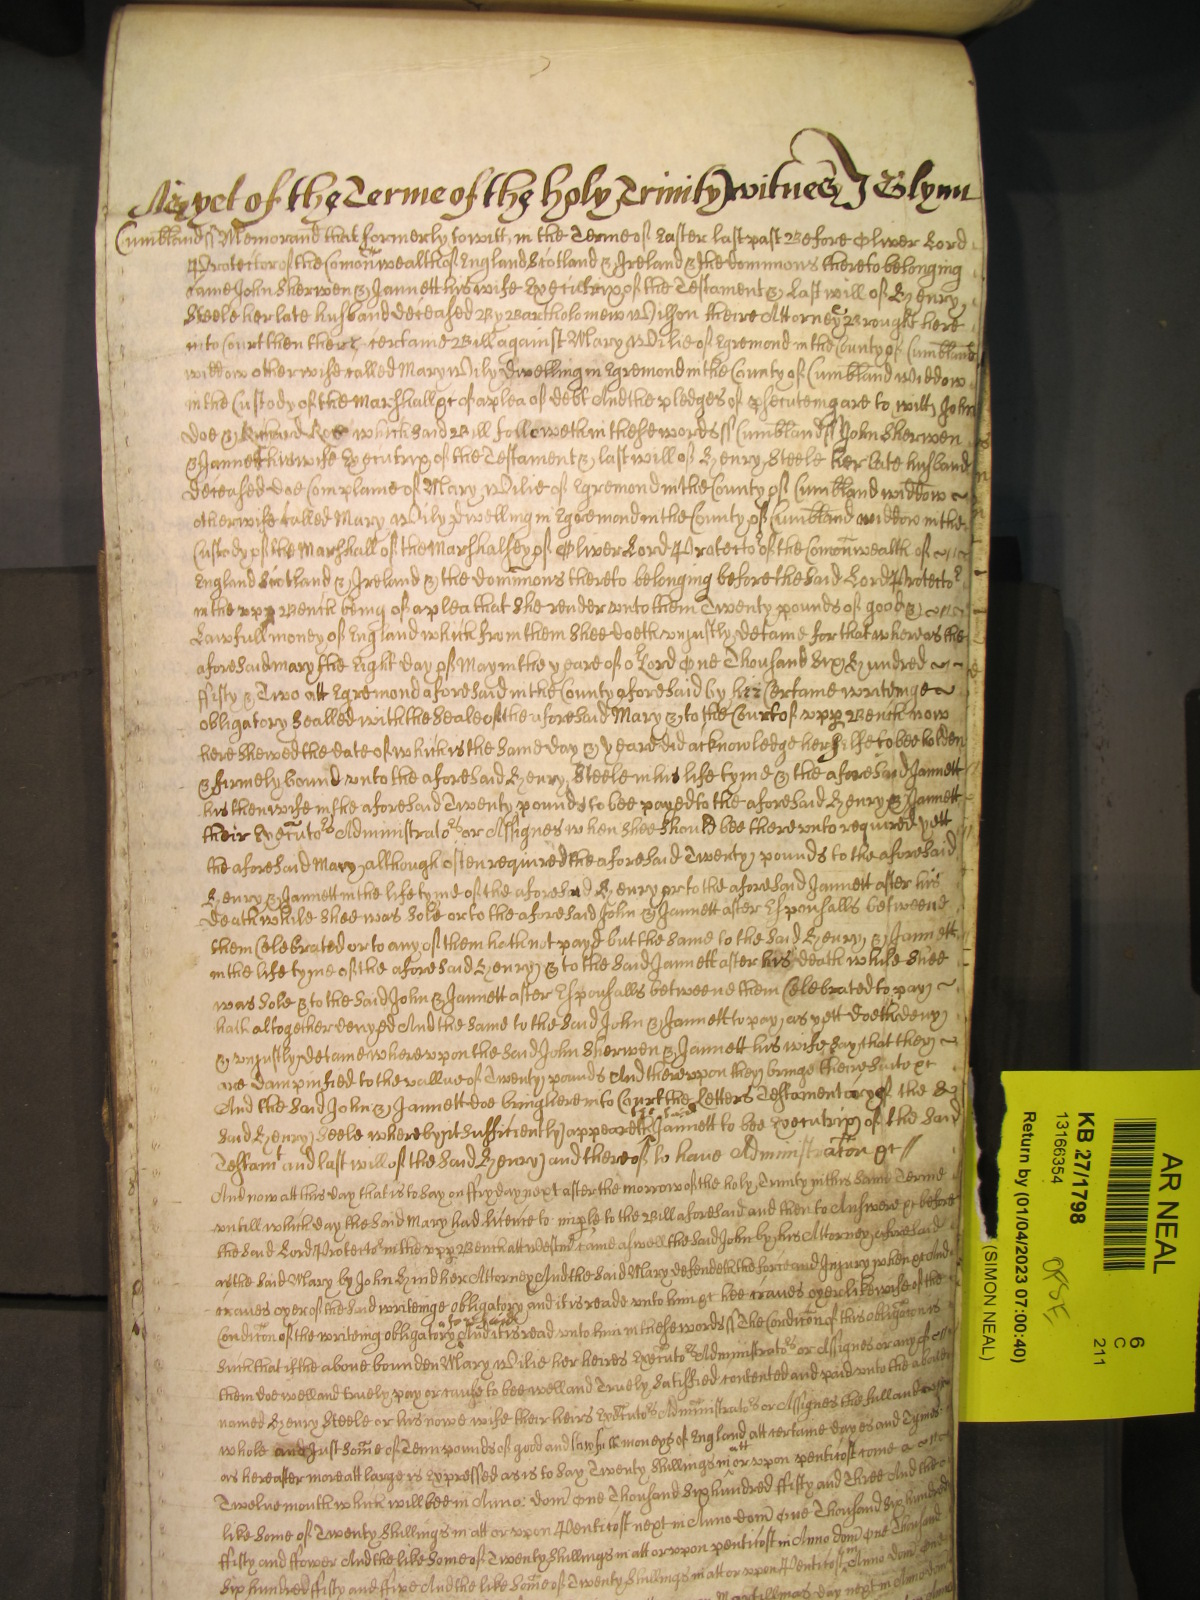 As yet of the Terme of the holy Trinity witnes J Glynn
Cumbland ss Memorand that formerly to witt in the Terme of Easter last past Before Oliver Lord
Protector of the Comonwealth of England Scotland & Ireland & the dominions thereto belonging
came John Sherwen & Jannett his wife Executrix of the Testament & last will of Henry
Steele her late husband deceased By Bartholomew Wilson theire Attorney Brought here
into Court then there certaine Bill against Mary Wilie of Egremond in the County of Cumbland
widdow otherwise called Mary Wily dwelling in Egremond in the County of Cumbland Widdow
in the Custody of the Marshall &c of a plea of debt And the pledges of psecuteing are to witt John
Doe & Richard Roe which said Bill followeth in these words ss Cumbland ss John Sherwen
& Jannett his wife Executrix of the Testament & last will of Henry Steele her late husband
deceased doe Complaine of Mary Wilie of Egremond in the County of Cumbland widdow
otherwise called Mary Wily dwelling in Egremond in the County of Cumbland widdow in the
Custody of the Marshall of the Marshalsey of Oliver Lord Protector of the Comonwealth of
England Scotland & Ireland & the dominions thereto belonging before the said Lord Protector
in the upp Bench being of a plea that she render unto them Twenty pounds of good &
Lawfull money of England which from them shee doeth unjustly detaine for that whereas the
aforesaid mary the Eight day of May in the yeare of or Lord One Thousand Six Hundred
ffifty & Two att Egremond aforesaid in the County aforesaid by her Certaine writeinge
obligatory sealled with the seale of the aforesaid Mary & to the Court of upp Bench now
here shewed the date of which is the same day & yeare did acknowledge her selfe to bee holden
& firmely bound unto the aforesaid Henry Steele in his life tyme & the aforesaid Jannett
his then wife in the aforesaid Twenty pounds to bee payed to the aforesaid Henry & Jannett
their Executors Administrators or Assignes when shee should bee thereunto required yett
the aforesaid Mary although often required the aforesaid Twenty pounds to the aforesaid
Henry & Jannett in the life tyme of the aforesaid Henry or to the aforesaid Jannett after his
death while shee was sole or to the aforesaid John & Jannett after Espousalls betweene
them Celebrated or to any of them hath not payd but the same to the said Henry & Jannett
in the life tyme of the aforesaid Henry & to the said Jannett after his death while shee
was sole & to the said John & Jannett after Espousalls betweene them Celebrated to pay
hath altogether denyed And the same to the said John & Jannett to pay as yett doeth deny
& unjustly detaine whereupon the said John Sherwen & Jannett his wife say that they
are dampnified to the vallue of Twenty pounds And thereupon they bringe theire suite &c
And the said John & Jannett doe bring here into Court the Letters Testamentary of the
said Henry Steele whereby it sufficiently appeareth the said Jannett to bee Executrix of the said
Testamt and last will of the said Henry and thereof to have Administracon &c
And now att this day that is to say on ffryday next after the morrow of the holy Trinity in this same Terme
untill which day the said Mary had licence to imple to the Bill aforesaid and then to Answere &c before
the said Lord Protector in the upp Bench att Westmr came aswell the said John by his Attorney aforesaid
as the said Mary by John her Attorney And the said Mary defendeth the force and Injury when &c And
craves oyer of the said writeinge obligatory and it is reade unto him &c hee craves oyer likewise of the
Condicon of the writeing obligatory aforesaid And it is read unto him in these words ss The Condicon of this obligacon is
such that if the above bounden Mary Wilie her heires Executors Administrators or Assignes or any of
them doe well and truely pay or cause to bee well and Truely satisfied contented and paid unto the above
named Henry Steele or his nowe wife their heirs Executors Administrators or Assignes the full and
whole and Just some of Tenn pounds of good and lawfull moneys of England att certaine dayes and Tymes
as hereafter more att large is expressed as is to say Twenty shillings in att or upon penticost come a
Twelve month which will bee in Anno: dom One Thousand Six hundred ffifty and Three And the
like some of Twenty shillings in att or upon Penticost next in Anno dom One Thousand Six hundred
ffifty and ffower And the like some of Twenty shillings in att or upon penticost in Anno dom One Thousand
Six hundred ffifty and ffive And the like some of Twenty shillings in att or upon Penticost in Anno dom One
AR NEAL
KB 27/1798
13166354
Return by (01/04/2023 07:00:40)
(SIMON NEAL)
6
C
211